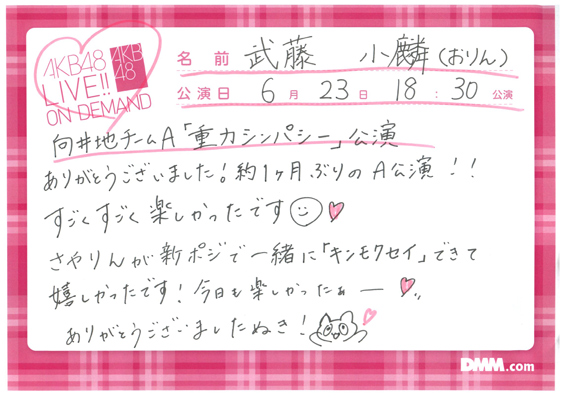 AKB48
LIVE!!
ON DEMAND
AKB
48
名前 武藤 小麟(おりん)
公演日 6月23日 18:30公演
向井地チームA「重力シンパシー」公演
ありがとうございました!約1ヶ月ぶりのA公演!!
すごくすごく楽しかったです
さやりんが新ポジで一緒に「キンモクセイ」できて
嬉しかったです!今日も楽しかったぁー
ありがとうございましたぬき!
DMM.com